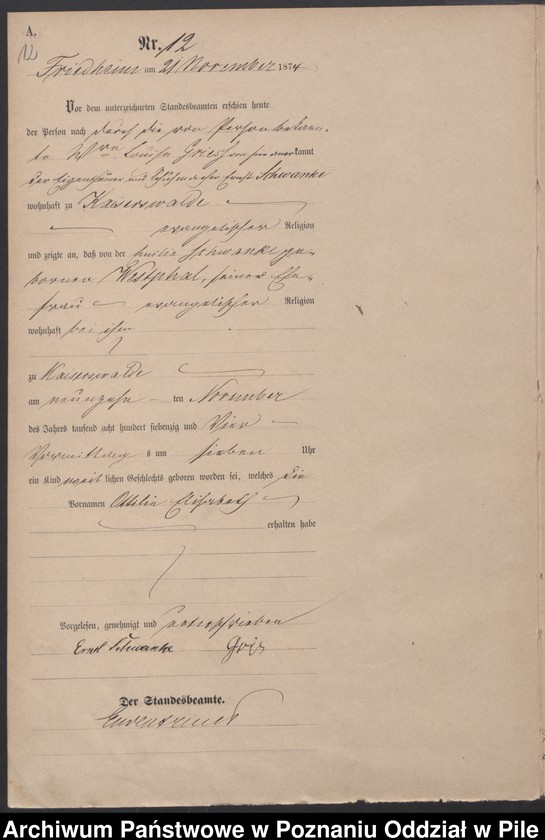 A.
12
Nr. 12
Friedheim am 21 November 1874
Vor dem unterzeichneten Standesbeamten erschien heute
der Person nach durch die von Person bekann-
te Louise anerkannt
der Eigenthümer und Ernst Schwanke
wohnhaft zu Kaiserswalde
evangelischer Religion
und zeigte an, daß von der Emilie Schwanke ge-
bornen Westphal, seiner Ehe-
frau evangelischer Religion
wohnhaft bei ihm
zu Kaiserswalde
am neunzehn ten November
des Jahres tausend acht hundert siebenzig und Vier
Vormittags um sieben Uhr
ein Kind weiblichen Geschlechts geboren worden sei, welches die
Vornamen Ottilie Elisabeth
erhalten habe
Vorgelesen, genehmigt und unterschrieben
Ernst Schwanke
Der Standesbeamte.
Archiwum Państwowe w Poznaniu Oddział w Pile